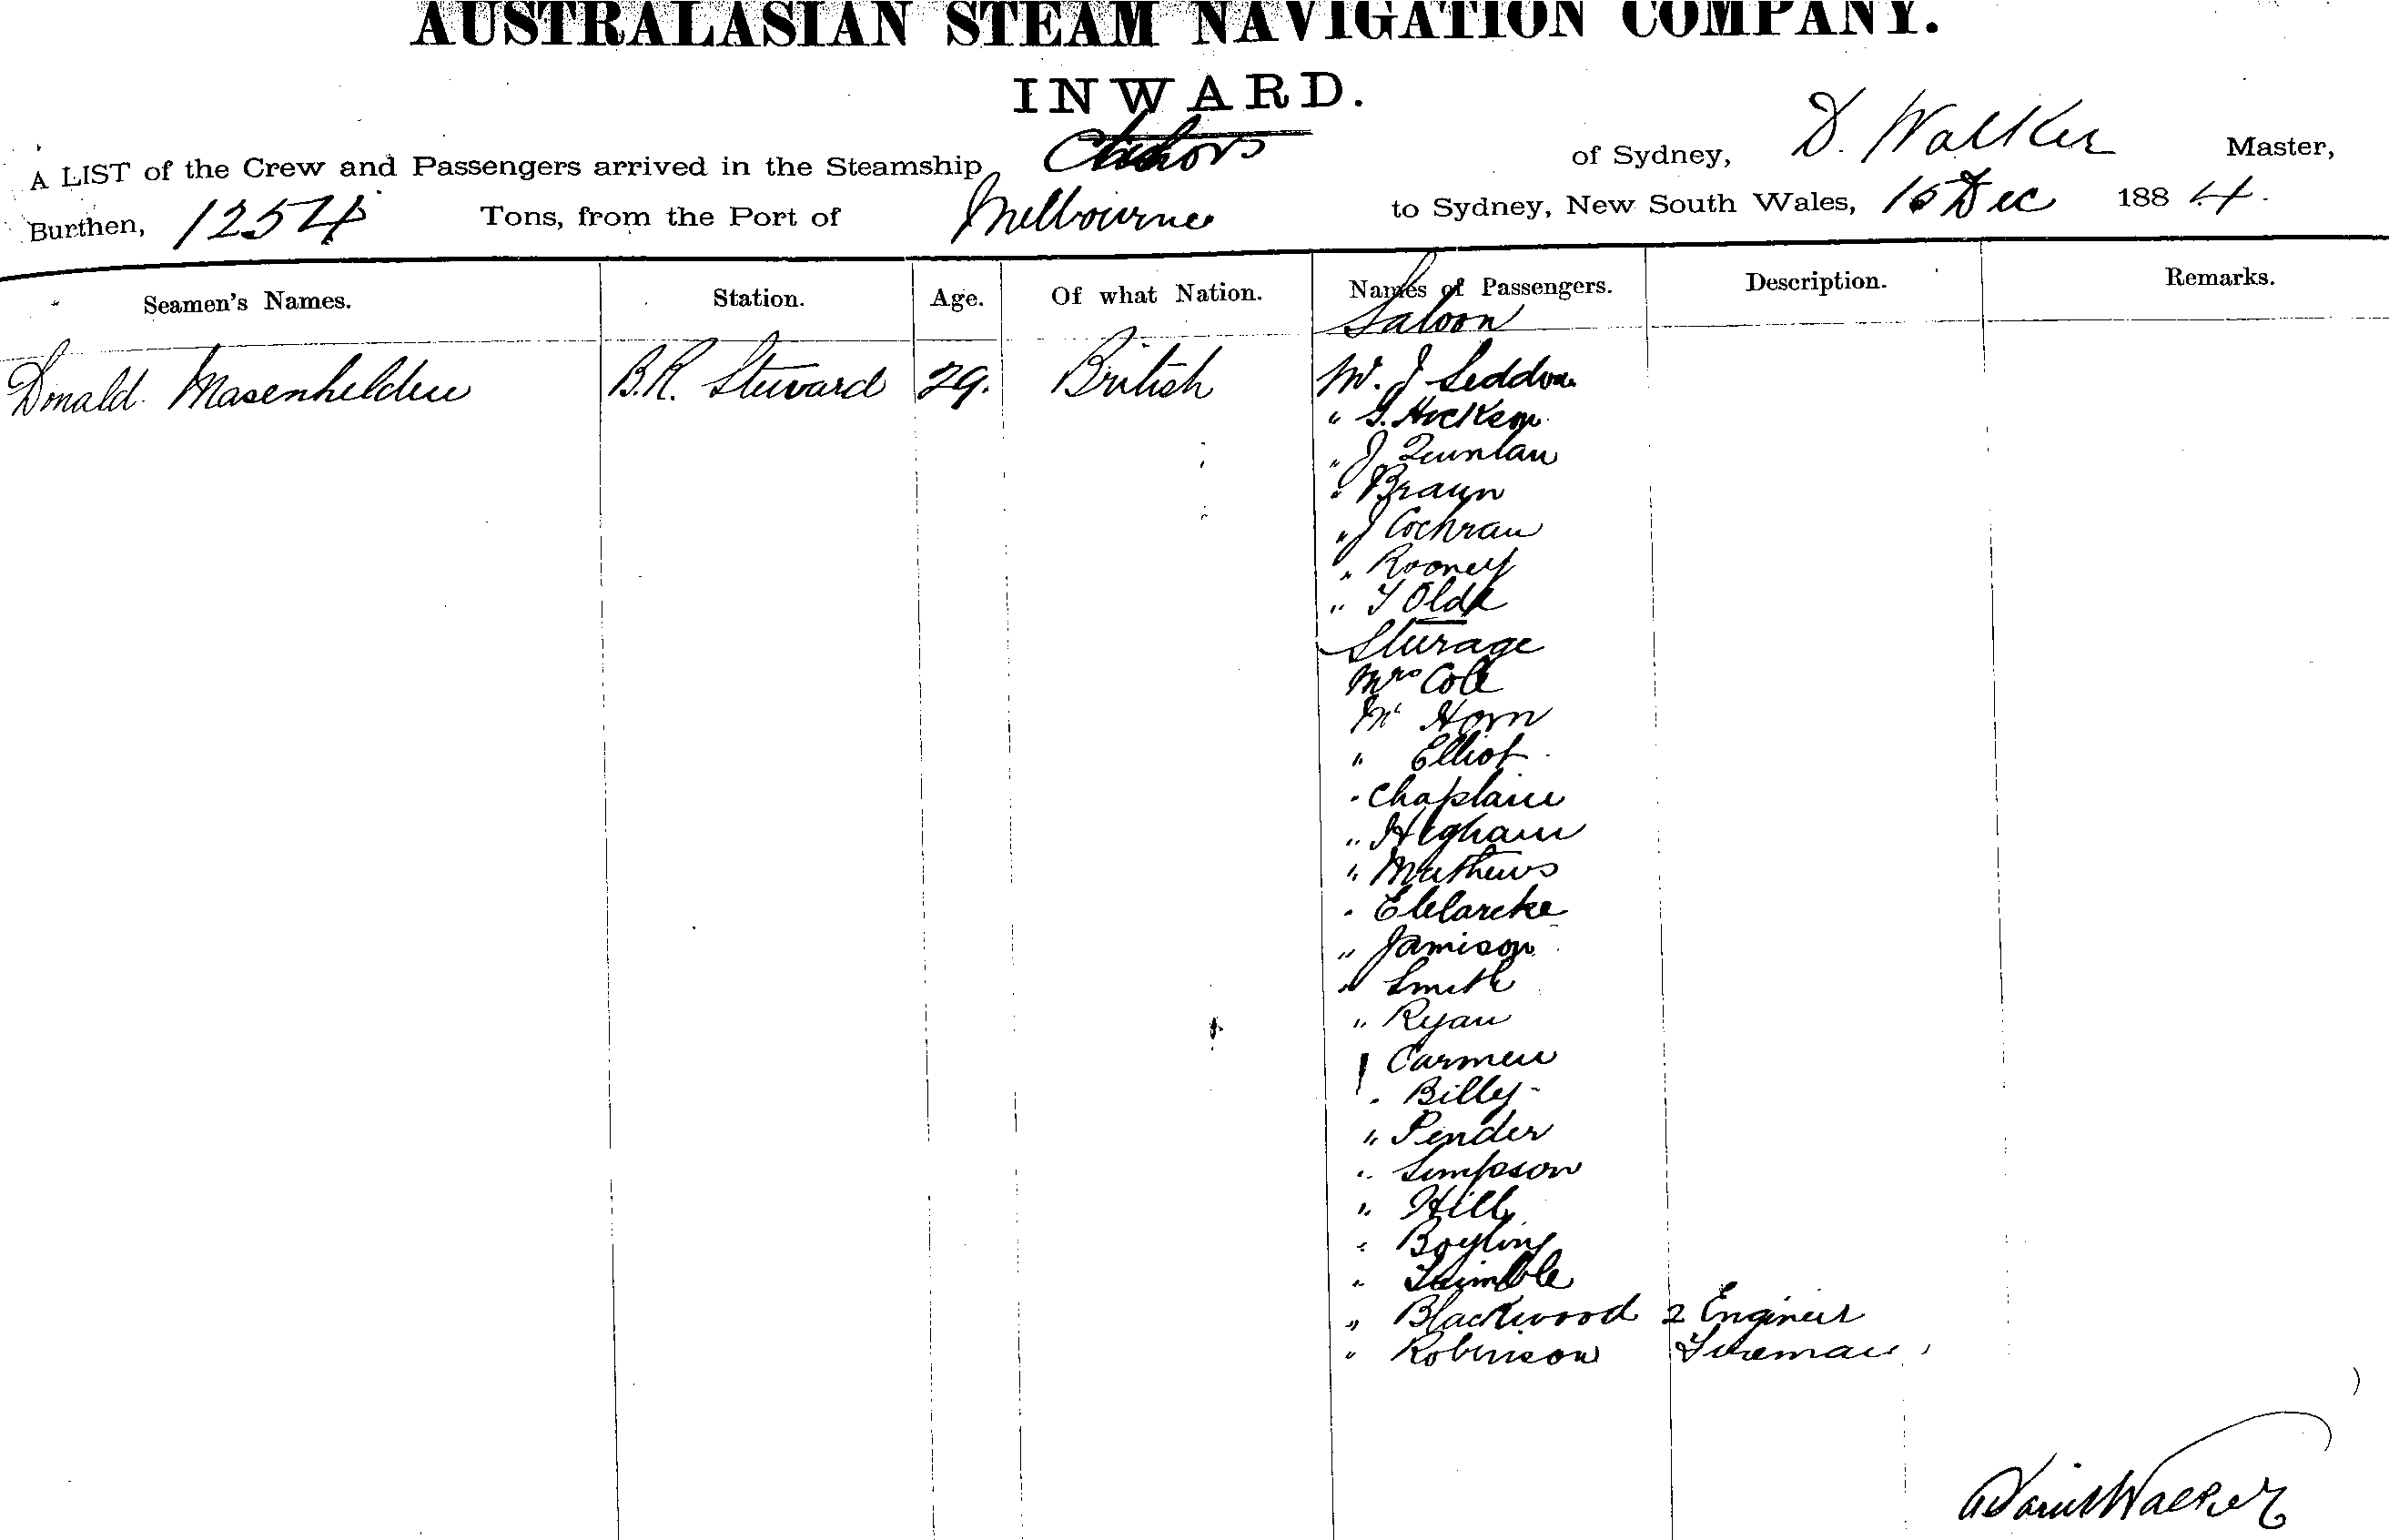 AUSTRALASIAN STEAM NAVIGATION COMPANY.
INWARD.
A LIST of the Crew and Passengers arrived in the Steamship of Sydney, D. Walker Master,
Burthen, 1254 Tons, from the Port of Melbourne to Sydney, New South Wales, Dec 1884.
Seamen's Names. Station. Age. Of what Nation. Names of Passengers. Description. Remarks.
Saloon
Donald B.R. Steward 29. British Mr. J Seddon
" 
" J Quinlan
" Braun
" J Cochran
" Rooney
" 
Sturage
Mrs Cole
Mr Horn
" Elliot
" Chaplain
" Higham
" Mathews
" E Clarcke
" Jamison
" Smith
" Ryan
" Carmen
" Billy
" Pender
" Simpson
" Hill
" Boyling
" Trimble
" Blackwood 2 Engineer
" Robinson Fireman
David Walker